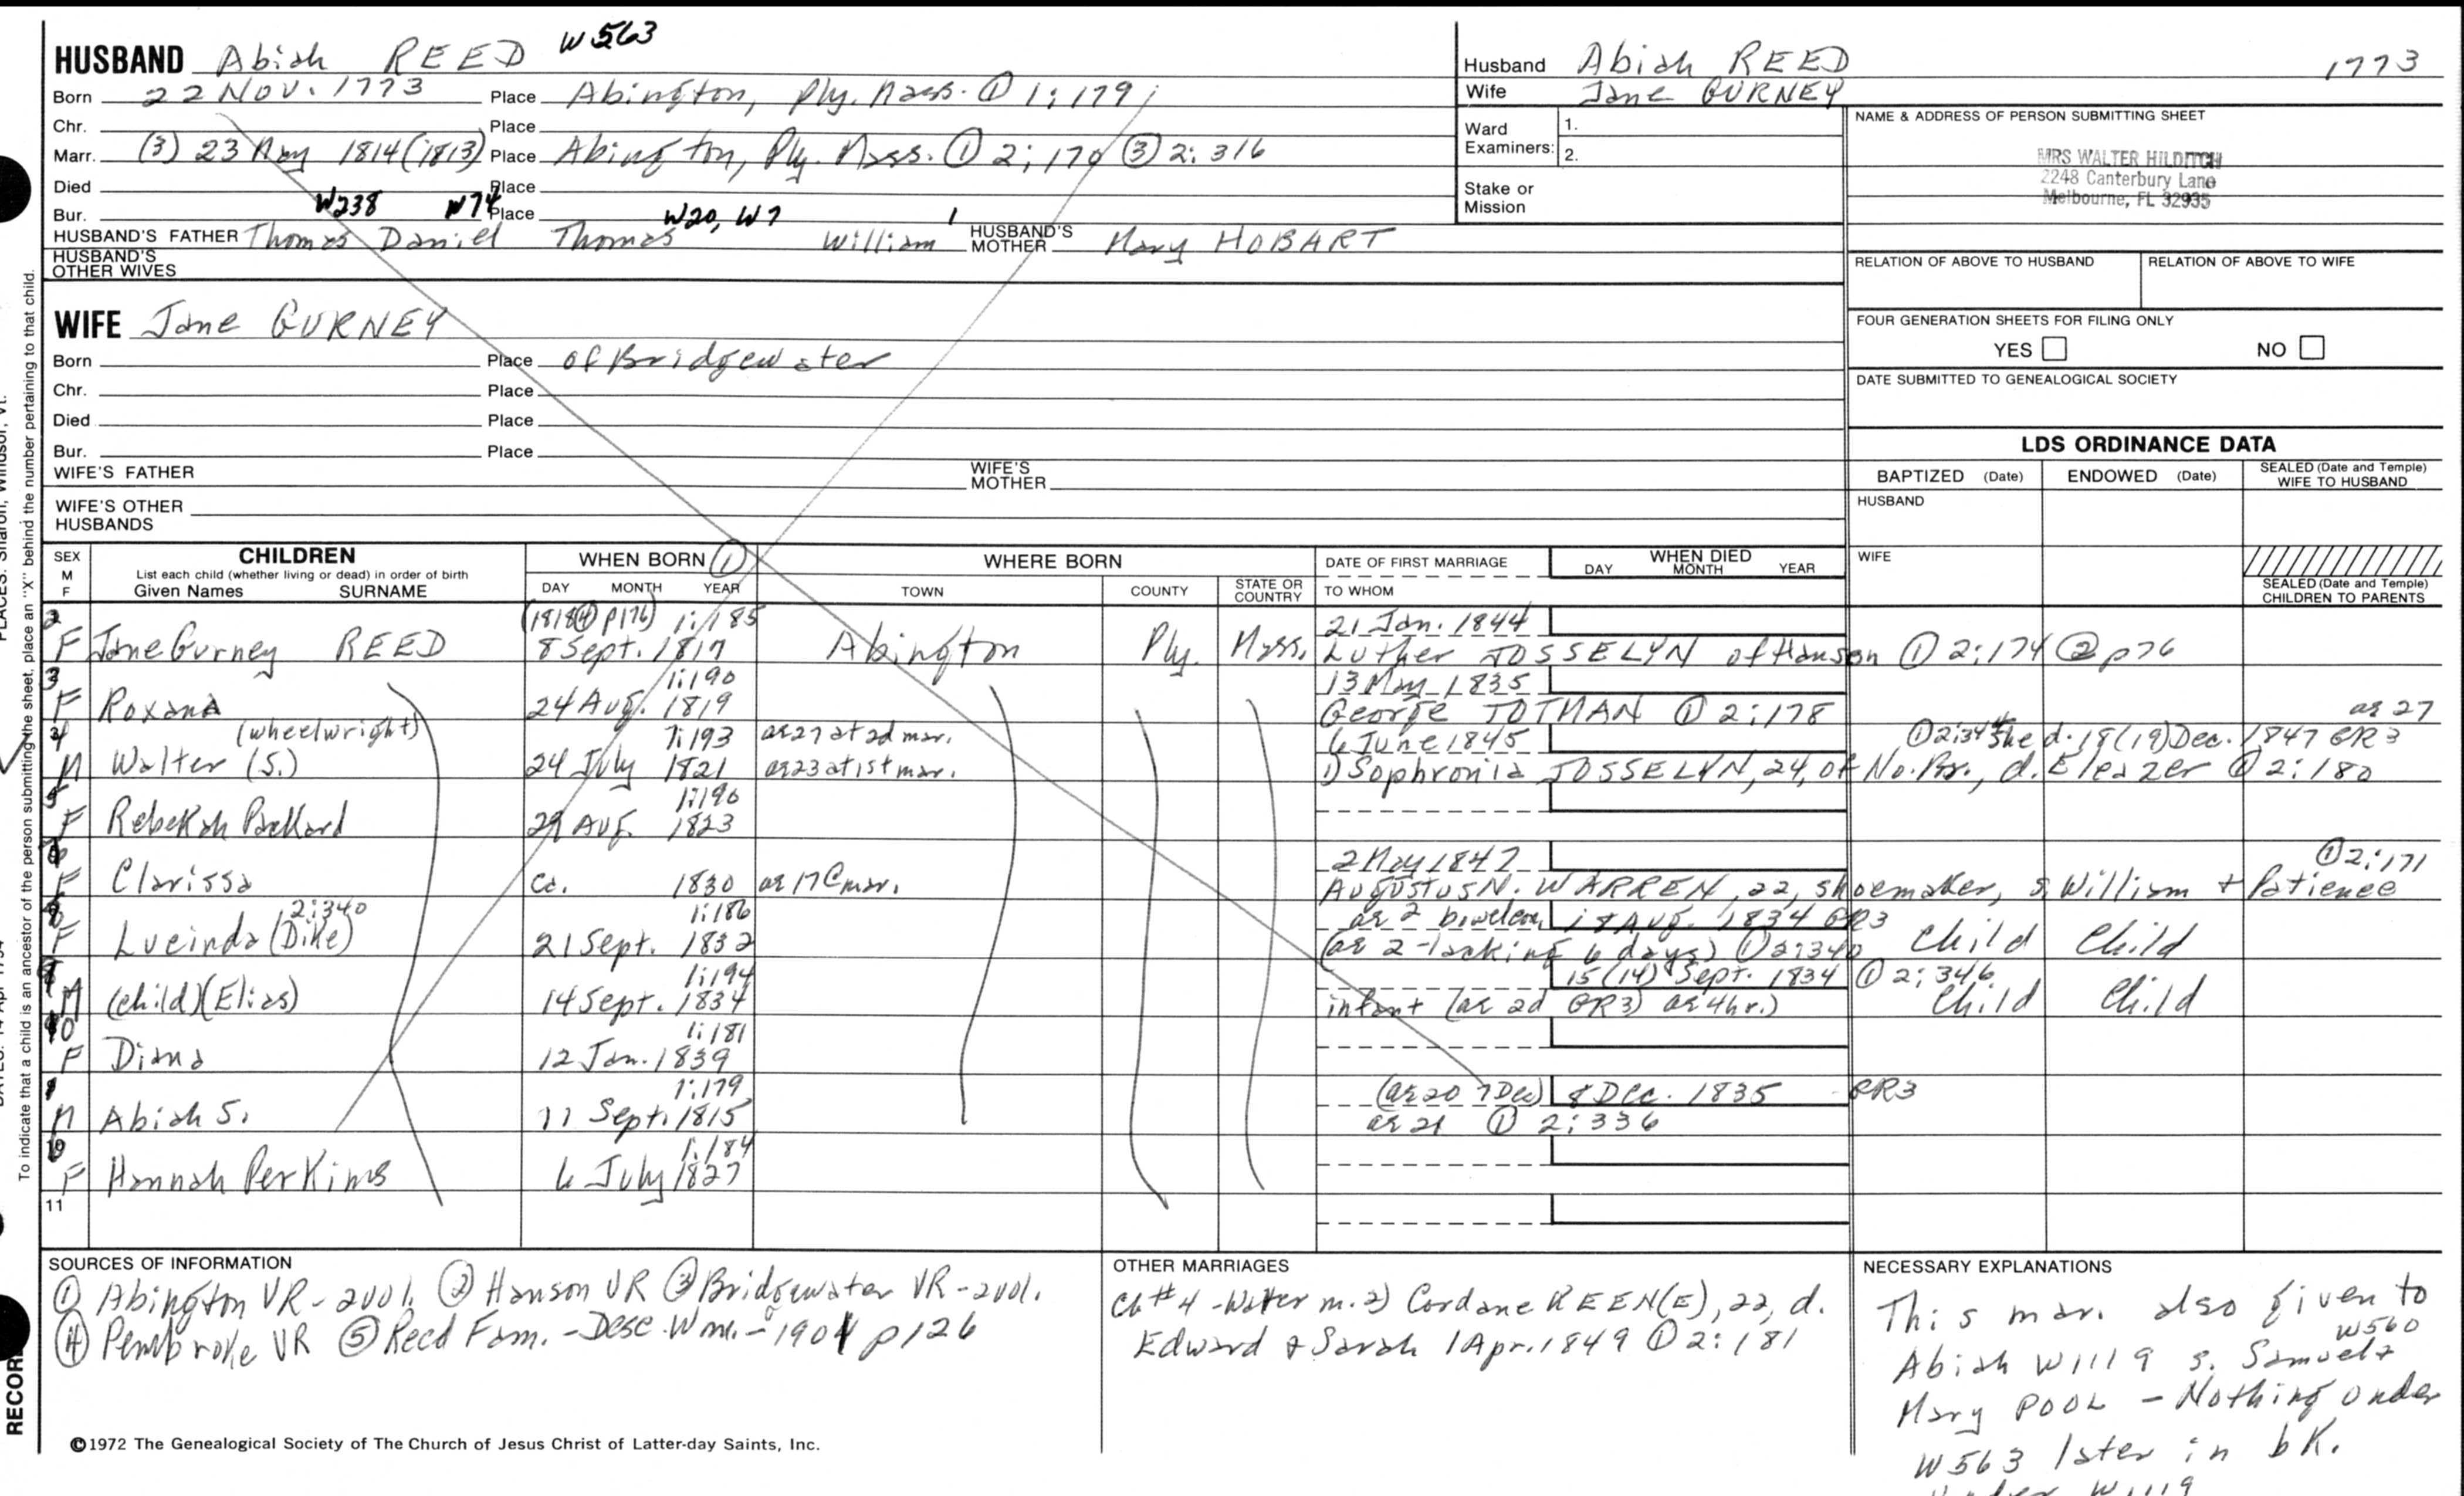 HUSBAND Abiah REED W563
Born 22 Nov. 1773 Place Abington, Ply. Mass. ① 1:179;
Chr. Place
Marr. (3) 23 May 1814 (1813) Place Abington, Ply. Mass. ① 2:170 ③ 2:316
Died Place
Bur. Place
W238 W74 W20, W7 1
HUSBAND'S FATHER Thomas Daniel Thomas William HUSBAND'S MOTHER Mary HOBART
HUSBAND'S OTHER WIVES
Husband Abiah REED 1773
Wife Jane GURNEY
Ward Examiners: 1.
2.
Stake or Mission
NAME & ADDRESS OF PERSON SUBMITTING SHEET
MRS WALTER HILDITCH
2248 Canterbury Lane
Melbourne, FL 32935
RELATION OF ABOVE TO HUSBAND RELATION OF ABOVE TO WIFE
FOUR GENERATION SHEETS FOR FILING ONLY
YES NO
DATE SUBMITTED TO GENEALOGICAL SOCIETY
WIFE Jane GURNEY
Born Place of Bridgewater
Chr. Place
Died Place
Bur. Place
WIFE'S FATHER WIFE'S MOTHER
WIFE'S OTHER HUSBANDS
LDS ORDINANCE DATA
BAPTIZED (Date) ENDOWED (Date) SEALED (Date and Temple) WIFE TO HUSBAND
HUSBAND
WIFE
SEALED (Date and Temple) CHILDREN TO PARENTS
SEX M F CHILDREN WHEN BORN ① WHERE BORN DATE OF FIRST MARRIAGE WHEN DIED
List each child (whether living or dead) in order of birth
Given Names SURNAME DAY MONTH YEAR TOWN COUNTY STATE OR COUNTRY TO WHOM DAY MONTH YEAR
2 (1818 ④ p176) 1:185 21 Jan. 1844
F Jane Gurney REED 8 Sept. 1817 Abington Ply. Mass. Luther JOSSELYN of Hanson ① 2:174 ② p76
3 1:190 13 May 1835
F Roxana 24 Aug. 1819 George TOTMAN ① 2:178
4 (wheelwright) 1:193 ae 27 at 2d mar. 6 June 1845 ① 2:344 She d. 18(19) Dec. 1847 GR3 ae 27
M Walter (S.) 24 July 1821 ae 23 at 1st mar. 1) Sophronia JOSSELYN, 24, of No. Br., d. Eleazer ① 2:180
5 1:190
F Rebekah Packard 29 Aug. 1823
2 May 1847 ① 2:171
F Clarissa ca. 1830 ae 17 @ mar. Augustus N. WARREN, 22, shoemaker, s. William + Patience
2:340 1:186 ae 2 18 Aug. 1834 GR3
F Lucinda (Dike) 21 Sept. 1832 (ae 2 - lacking 6 days) ① 2:340 Child Child
1:194 15(14) Sept. 1834 ① 2:346
M (child) (Elias) 14 Sept. 1834 infant (ae 2d GR3) ae 4hr.) Child Child
10 1:181
F Diana 12 Jan. 1839
1 1:179 (ae 20 7 Dec) 8 Dec. 1835 GR3
M Abiah S. 11 Sept. 1815 ae 21 ① 2:336
1:184
F Hannah Perkins 6 July 1827
11
SOURCES OF INFORMATION
① Abington VR - 2vol. ② Hanson VR ③ Bridgewater VR - 2vol.
④ Pembroke VR ⑤ Reed Fam. - Desc. Wm. - 1901 p126
OTHER MARRIAGES
Ch #4 - Walter m. 2) Cordane KEEN(E), 22, d.
Edward + Sarah 1 Apr. 1849 ① 2:181
NECESSARY EXPLANATIONS
This mar. also given to
W560
Abiah W1119 s. Samuel +
Mary POOL - Nothing under
W563 later in bk.
W1119
©1972 The Genealogical Society of The Church of Jesus Christ of Latter-day Saints, Inc.
To indicate that a child is an ancestor of the person submitting the sheet, place an "X" behind the number pertaining to that child.
RECOR